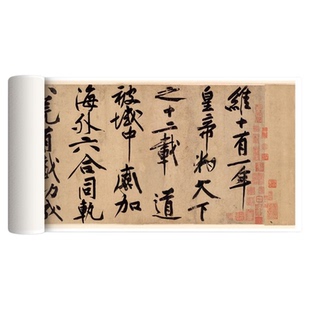 維十有一年
皇帝御天下
之十二載道
被域中威加
海外六合同軌
荒有截功成